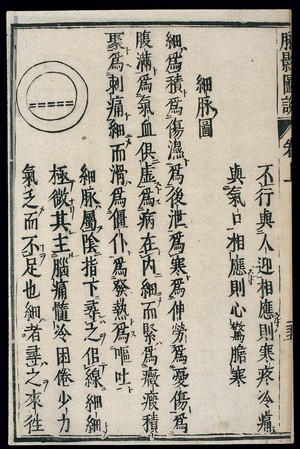 不行與人迎相應則寒疼冷痛
與氣口相應則心驚膽寒
細脉圖
細爲積爲傷濕爲後泄爲寒爲伸勞爲憂傷爲
腹滿爲氣血俱虛爲病在内細而緊爲癥瘕積
聚爲刺痛細而滑爲僵仆爲發熱爲嘔吐
細脉屬陰指下尋之但線細細
極微其主腦痛髓冷困倦少力
氣乏而不足也細者尋之來往
脉影圖說
卷上